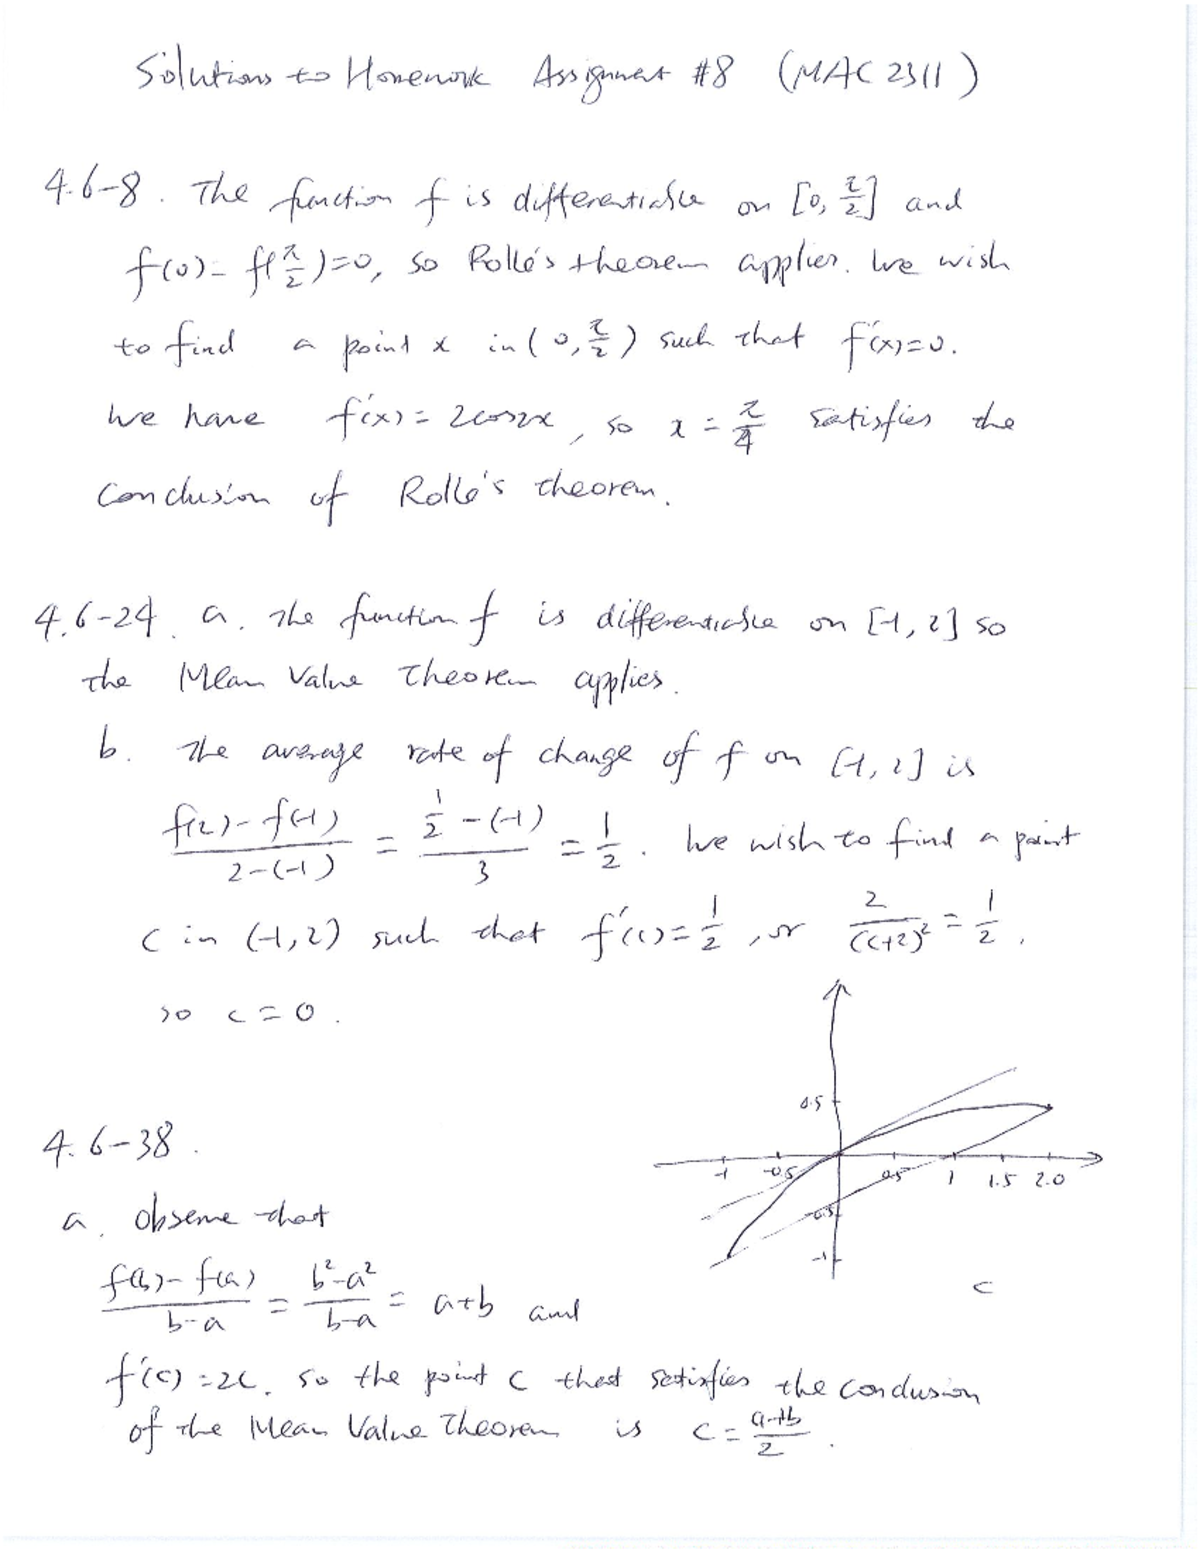 Solutions to Homework Assignment #8 (MAC 2311)
4.6-8. The function f is differentiable on [0, π/2] and
f(0) = f(π/2) = 0, so Rolle's theorem applies. We wish
to find a point x in (0, π/2) such that f'(x) = 0.
We have f'(x) = 2cos2x, so x = π/4 satisfies the
conclusion of Rolle's theorem.
4.6-24. a. The function f is differentiable on [-1, 2] so
the Mean Value Theorem applies.
b. The average rate of change of f on [-1, 2] is
(f(2) - f(-1))/(2-(-1)) = (1/2 - (-1))/3 = 1/2. We wish to find a point
c in (-1, 2) such that f'(c) = 1/2, or 2/(c+2)² = 1/2,
so c = 0.
0.5
4.6-38.
-1 -0.5 0.5 1 1.5 2.0
a. observe that
-0.5
-1
(f(b) - f(a))/(b-a) = (b²-a²)/(b-a) = a+b and
c
f'(c) = 2c. so the point c that satisfies the conclusion
of the Mean Value Theorem is c = (a+b)/2.